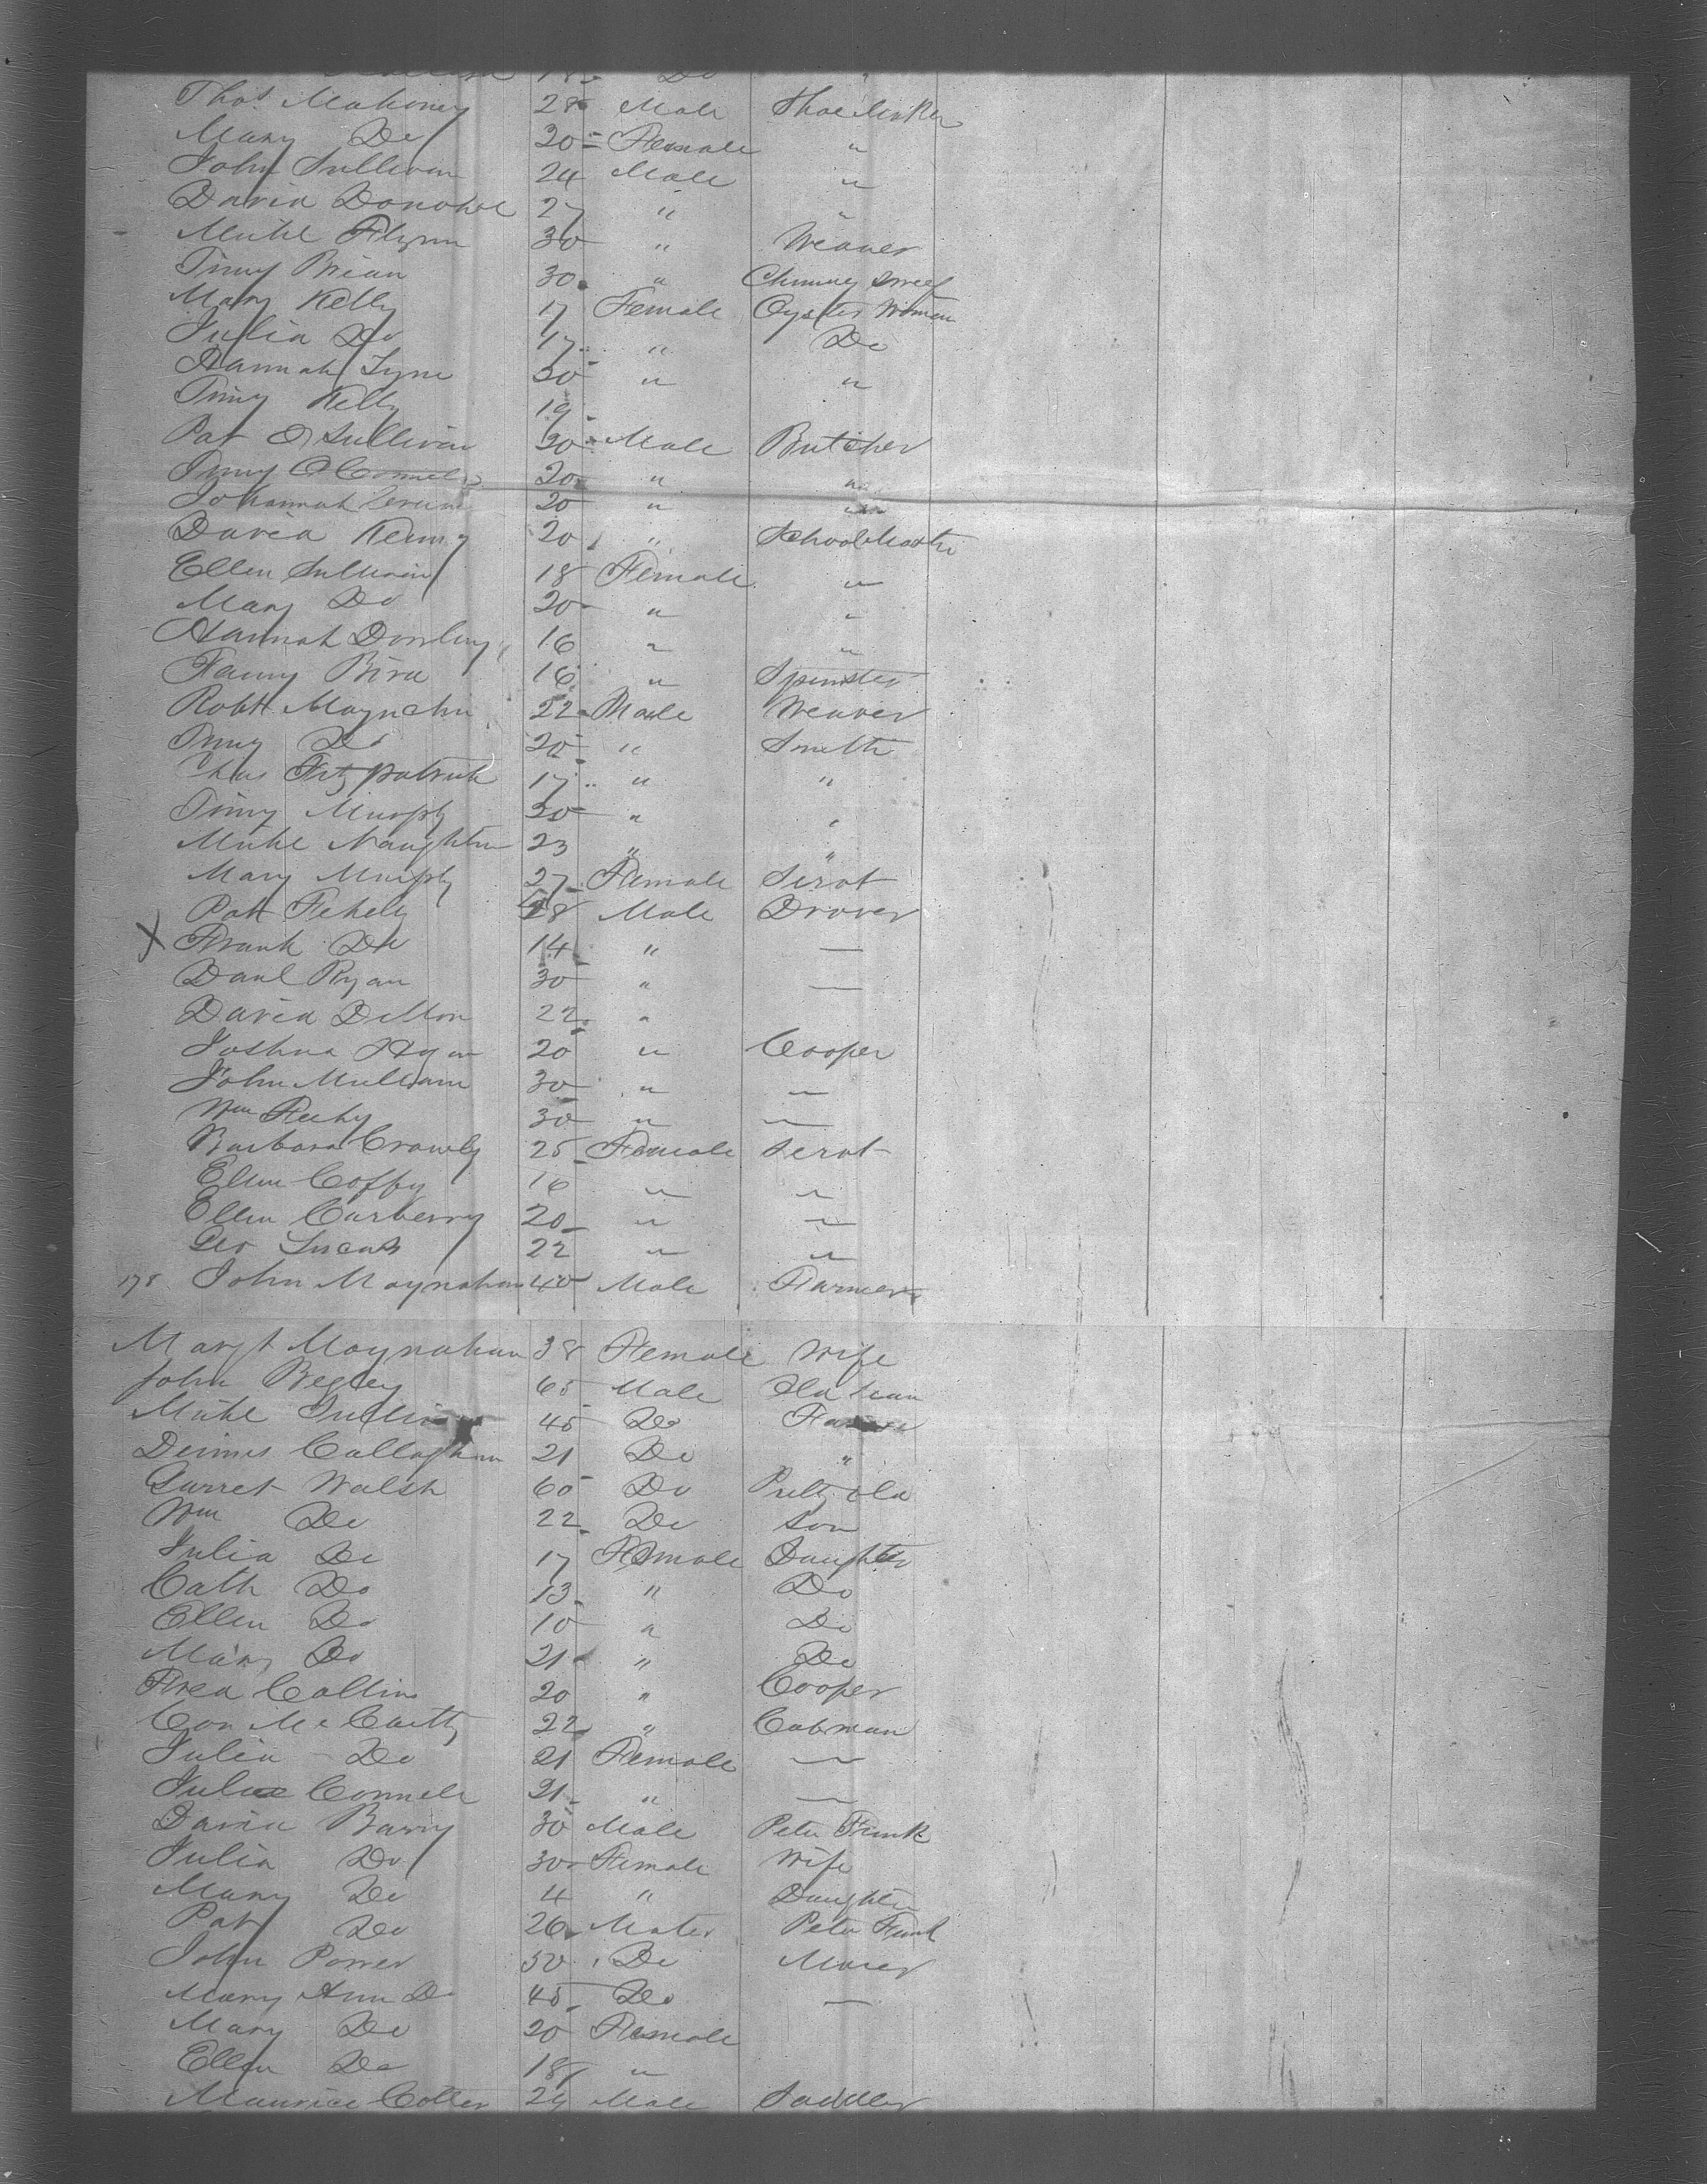 18 Do "
Thos Mahoney 28 Male Shoe Maker
Mary Do 20 Female "
John Sullivan 24 Male "
David Donohoe 27 " "
Michl Flynn 30 " Weaver
Timy Brien 30 " Chimney Sweep
Mary Kelly 17 Female Oyster Woman
Julia Do 17 " Do
Hannah Lyne 30 " "
Timy Kelly 19
Pat O Sullivan 30 Male Butcher
Timy O Connell 20 " "
Johannah 20 " "
David Kenny 20 " School Master
Ellen Sullivan 18 Female "
Mary Do 20 " "
Hannah Dowling 16 " "
Fanny Bird 16 " Spinster
Robt 22 Male Weaver
Timy Do 20 " Smith
Chas Fitzpatrick 17 " "
Timy Murphy 30 " "
Michl Naughton 23 " "
Mary Murphy 27 Female Servt
Patt 28 Male Drover
X Frank Do 14 " —
Danl Ryan 30 " —
David Dillon 22 "
Joshua 20 " Cooper
John 30 " "
Wm 30 " "
Barbara Crowly 25 Female Servt
Ellen Coffy 16 " "
Ellen Carberry 20 " "
Geo Lucas 22 " "
178 John Moynahan 40 Male Farmer
Margt Moynahan 38 Female Wife
John Begley 65 Male Old Man
Michl 45 Do
Dennis Callaghan 21 Do "
Garret Walsh 60 Do Pretty Old
Wm Do 22 Do Son
Julia Do 17 Female Daughter
Cath Do 13 " Do
Ellen Do 10 " Do
Mary Do 21 " Do
Fred Collins 20 " Cooper
Con McCarthy 22 " Cabman
Julia Do 21 Female "
Julia Connell 21 " "
David Barry 30 Male Peter Funk
Julia Do 30 Female Wife
Mary Do 4 " Daughter
Pat Do 26 Male Peter Funk
John Power 50 Do
Mary Ann Do 45 Do —
Mary Do 20 Female
Ellen Do 18 "
Maurice 29 Male Saddler